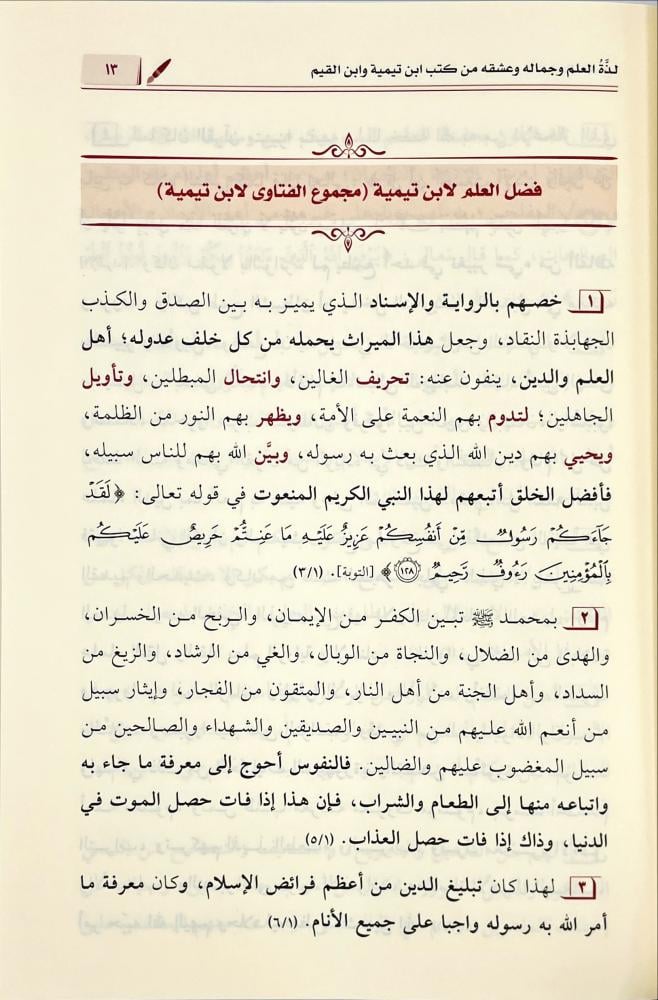 لذَّةُ العلم وجماله وعشقه من كتب ابن تيمية وابن القيم ١٣
فضل العلم لابن تيمية (مجموع الفتاوى لابن تيمية)
١ خصهم بالرواية والإسناد الذي يميز به بين الصدق والكذب
الجهابذة النقاد، وجعل هذا الميراث يحمله من كل خلف عدوله؛ أهل
العلم والدين، ينفون عنه: تحريف الغالين، وانتحال المبطلين، وتأويل
الجاهلين؛ لتدوم بهم النعمة على الأمة، ويظهر بهم النور من الظلمة،
ويحيي بهم دين الله الذي بعث به رسوله، وبيَّن الله بهم للناس سبيله،
فأفضل الخلق أتبعهم لهذا النبي الكريم المنعوت في قوله تعالى: ﴿لَقَدْ
جَآءَكُمْ رَسُولٌ مِّنْ أَنفُسِكُمْ عَزِيزٌ عَلَيْهِ مَا عَنِتُّمْ حَرِيصٌ عَلَيْكُم
بِالْمُؤْمِنِينَ رَءُوفٌ رَّحِيمٌ ١٢٨﴾ [التوبة]. (٣/١)
٢ بمحمد ﷺ تبين الكفر من الإيمان، والربح من الخسران،
والهدى من الضلال، والنجاة من الوبال، والغي من الرشاد، والزيغ من
السداد، وأهل الجنة من أهل النار، والمتقون من الفجار، وإيثار سبيل
من أنعم الله عليهم من النبيين والصديقين والشهداء والصالحين من
سبيل المغضوب عليهم والضالين. فالنفوس أحوج إلى معرفة ما جاء به
واتباعه منها إلى الطعام والشراب، فإن هذا إذا فات حصل الموت في
الدنيا، وذاك إذا فات حصل العذاب. (٥/١)
٣ لهذا كان تبليغ الدين من أعظم فرائض الإسلام، وكان معرفة ما
أمر الله به رسوله واجبا على جميع الأنام. (٦/١)